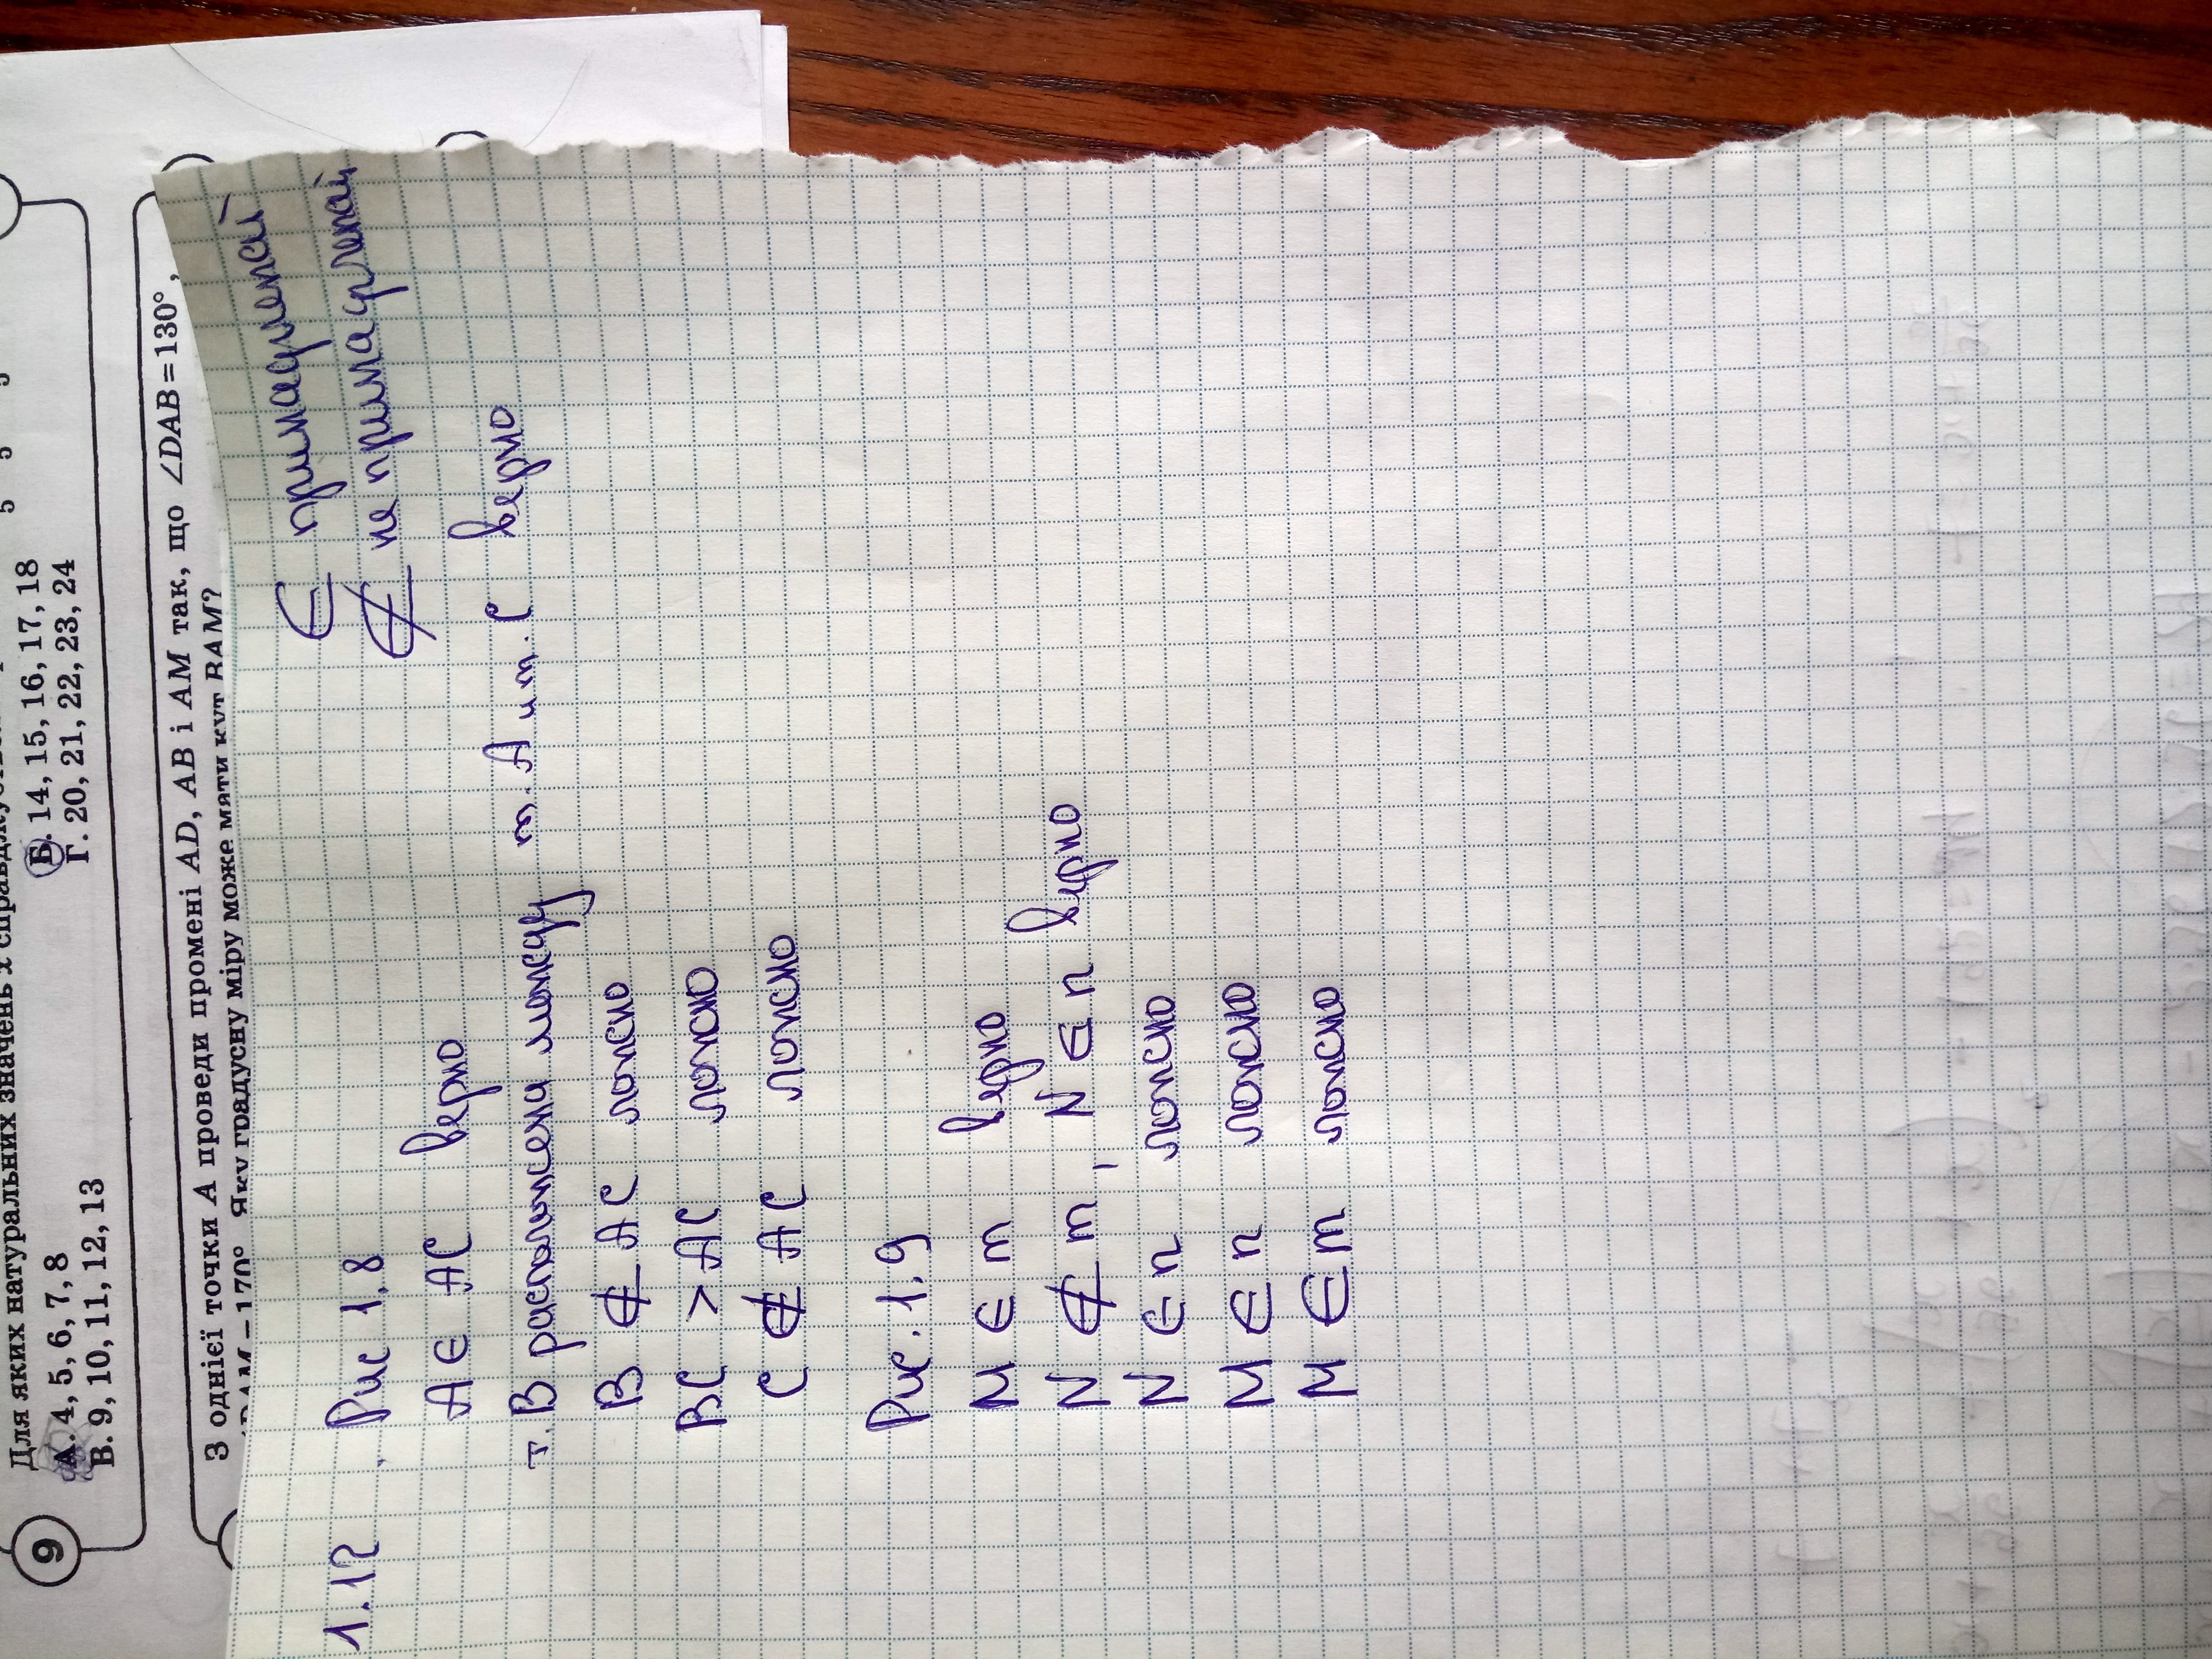 9
Для яких натуральних значень x
А. 4, 5, 6, 7, 8
Б. 14, 15, 16, 17, 18
В. 9, 10, 11, 12, 13
Г. 20, 21, 22, 23, 24
З однієї точки A проведи промені AD, AB і AM так, що ∠DAB = 130°,
170° Яку градусну міру може мати кут BAM?
∈ принадлежай
∉ не принадлежай
1.12 Рис 1.8
A ∈ AC верно
т. B расположена между т. A и т. C верно
B ∉ AC ложно
BC > AC ложно
C ∉ AC ложно
Рис. 1.9
M ∈ m верно
N ∉ m, N ∈ n верно
N ∈ n ложно
M ∈ n ложно
M ∈ m ложно